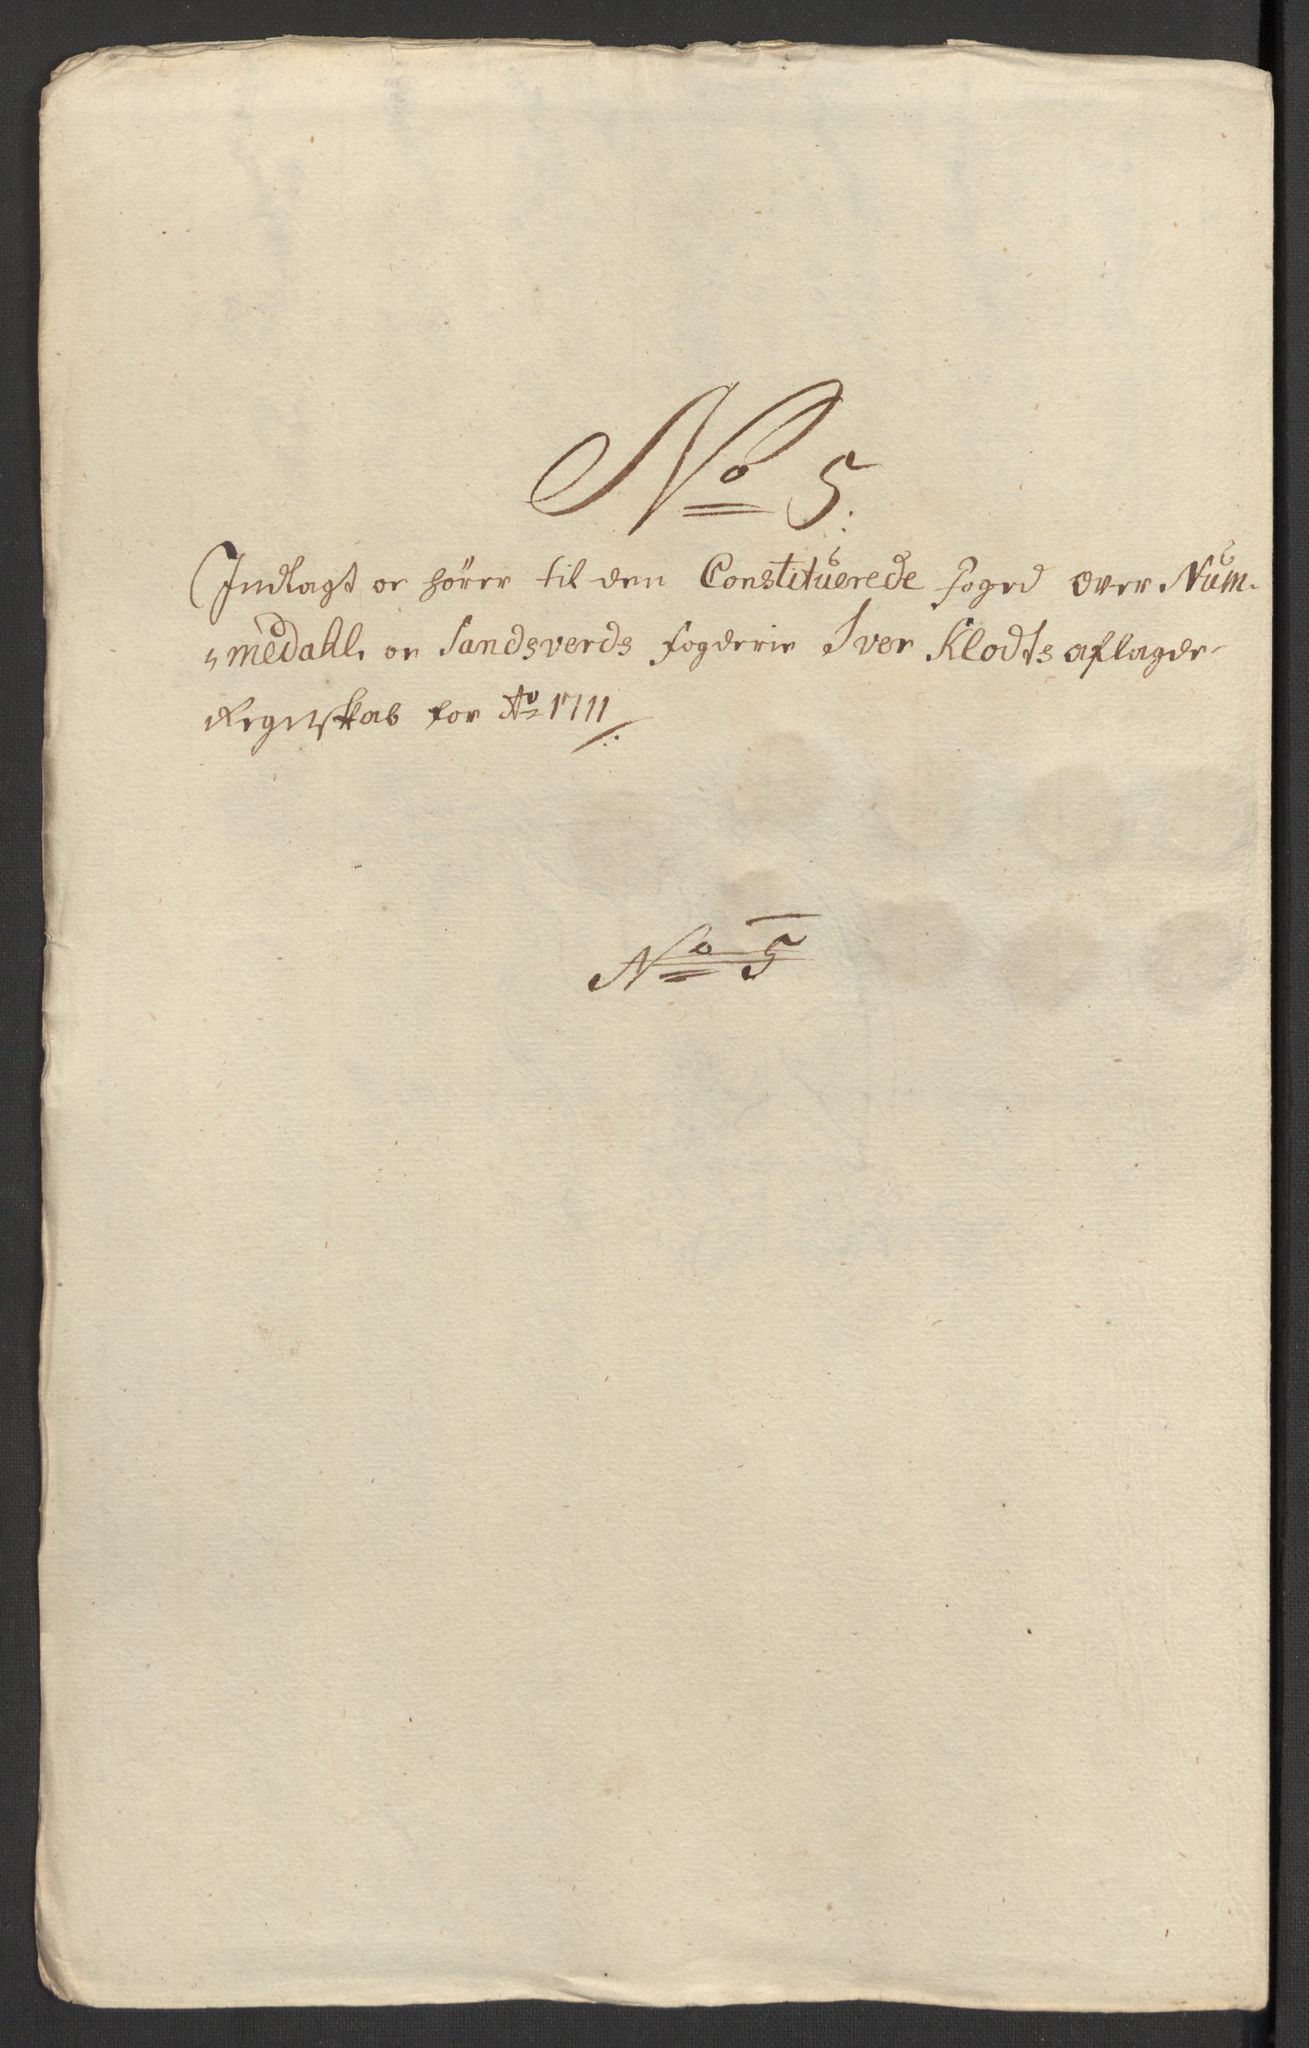 No 5.
Indlagt og hører til den Constituerede foged over Num-
medahl og Sandsverds fogderie Iver Klodts aflagde
Regnskab for Ao 1711
No 5